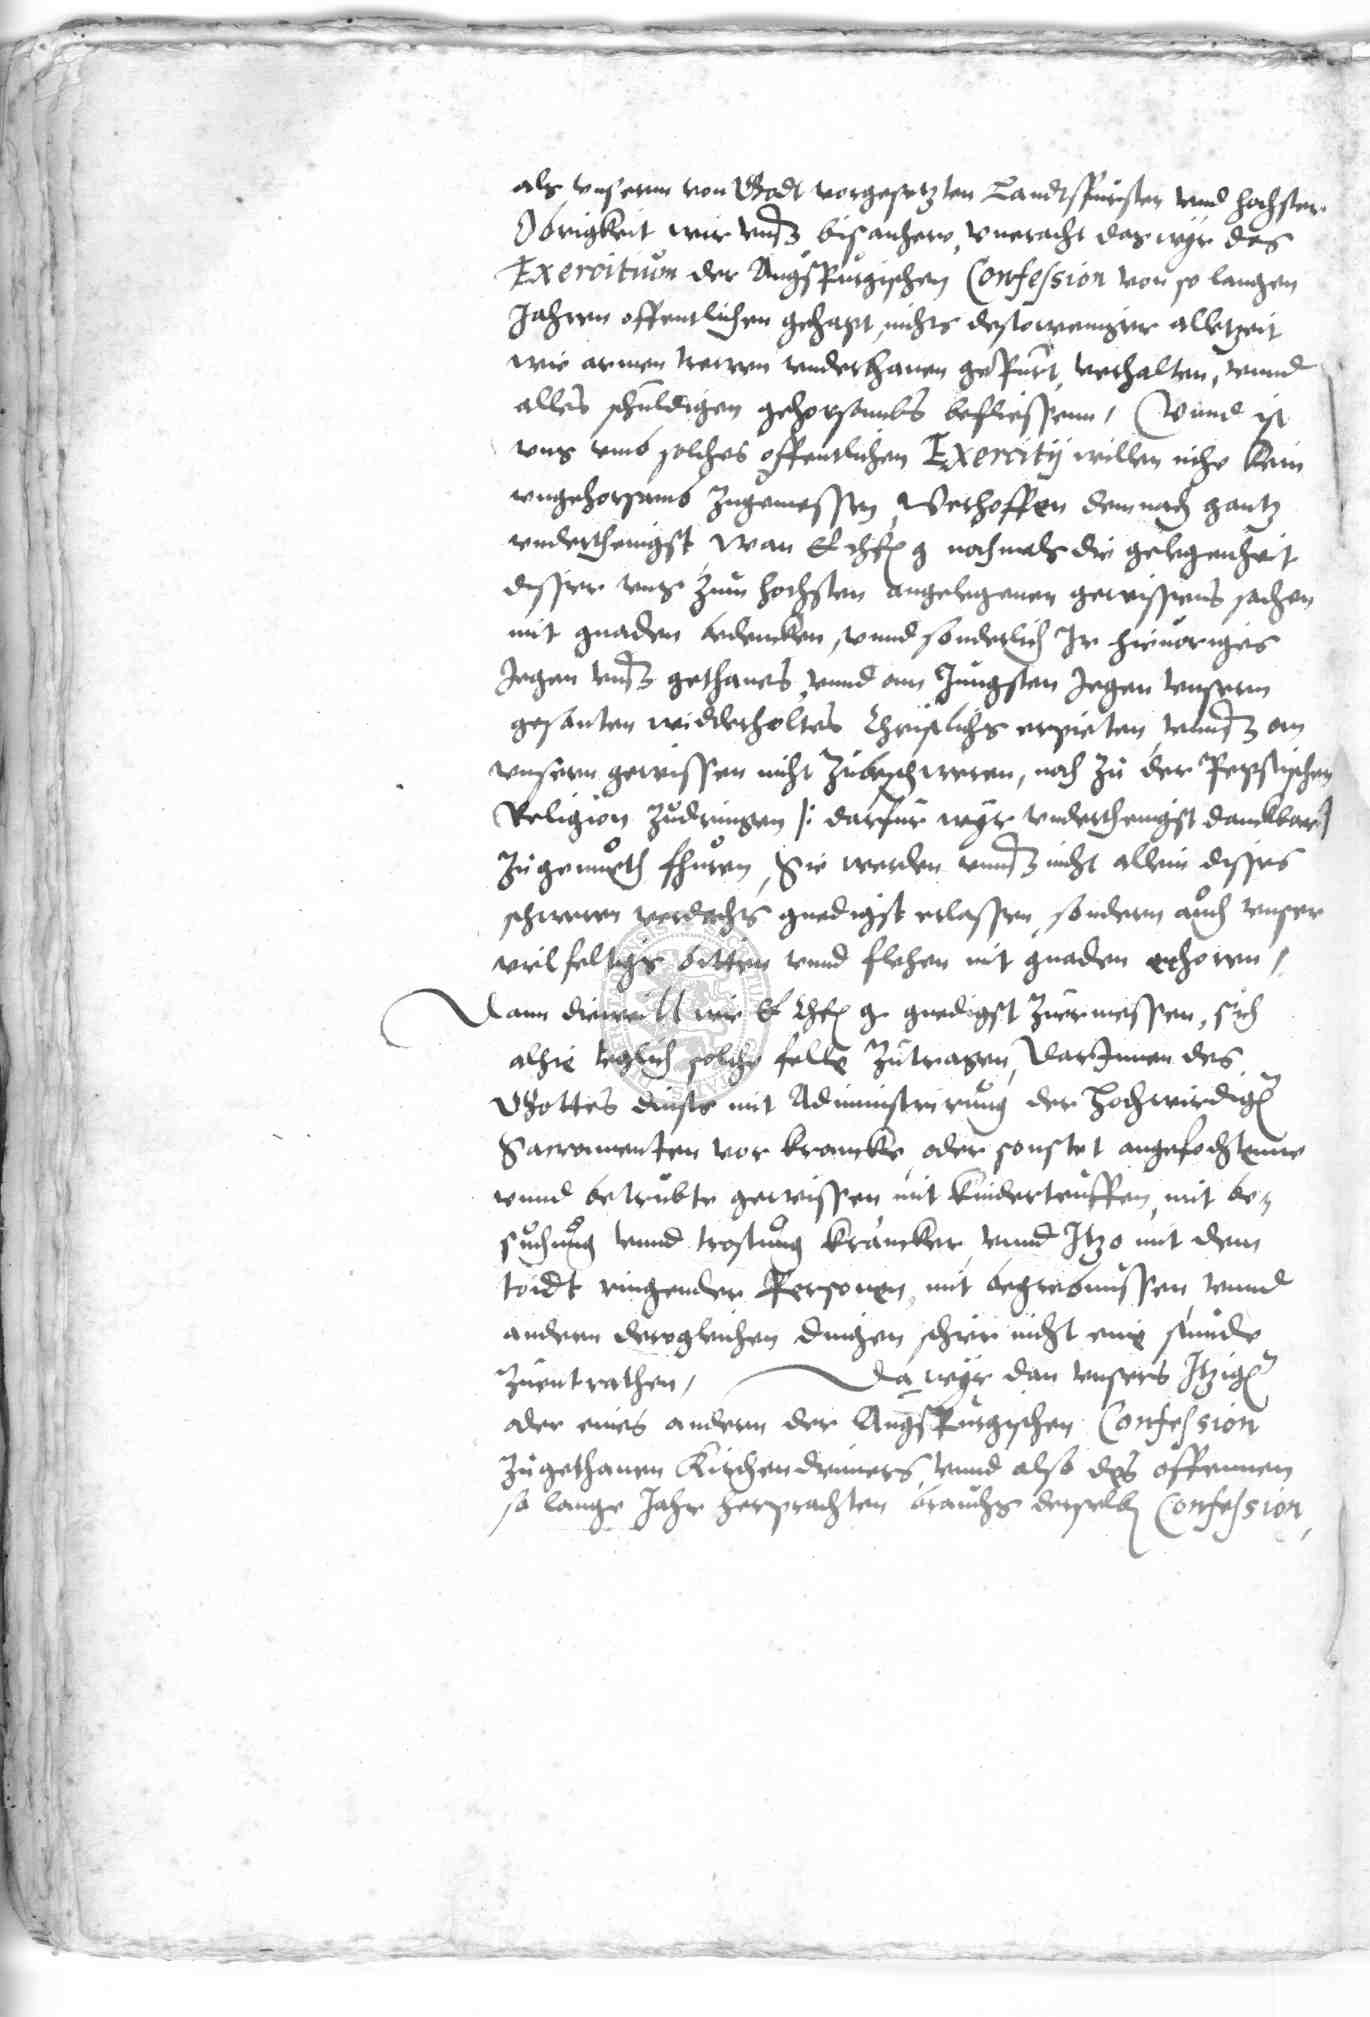 als unserm von Godt vorgesetzten Landtsfursten unnd hochsten
Obrigkeit wir unnß bisanhero, uneracht das wyr das
Exercitium der Augspurgischen Confession von so langen
Jahren offentlichen gehapt, nichts destoweniger alletzeit
wie armen trewen underthanen gepürt, verhalten, unnd
alles schuldigen gehorsambs befliessenn, Unnd ist
uns umb solches offentlichen Exercitij willen nihe kein
ungehorsamb zugemessen, Verhoffen demnach gantz
underthenigst, wan E Chf g nochmals die gelegenheit
disser uns zum hochsten angelegenen gewissens sachen
mit gnaden bedencken, unnd sonderlich Ir hievoriges
Jegen unnß gethanes, unnd am Jungsten Jegen unserm
gesanten widderholtes Christlichs erpieten, unnß an
unserm gewissen nicht zubeschweren, noch zu der Pepstischen
Religion zudringen /: darfur wyr underthenigst danckbar :/
zu gemueth fhuren, Sie werden unnß nicht allein disses
schweren verdachts gnedigst erlassen, sondern auch unser
vilfeltigs bitten unnd flehen mit gnaden erhoren,
Dann dieweill wie E Chf g gnedigst zuermessen, sich
alhie teglich solche felle zutragen, Darinnen des
Gottes dinsts mit Administrirung der Hochwirdig
Sacramenten vor krancke, oder sonstet angefochtenne
unnd betrubte gewissen, mit kinderteuffen, mit be-
suchung unnd trostung krancker, unnd Itzo mit dem
toidt ringender Personen, mit begrebnussen, unnd
andern dergleichen dingen, schir nicht eine stunde
zuentrathen, Da wyr dan unsers Itzig
oder eines andern der Augspurgischen Confession
zugethanen Kirchendieners, unnd also des offennen
so lange Jahr herprachten brauchs derselb Confession,